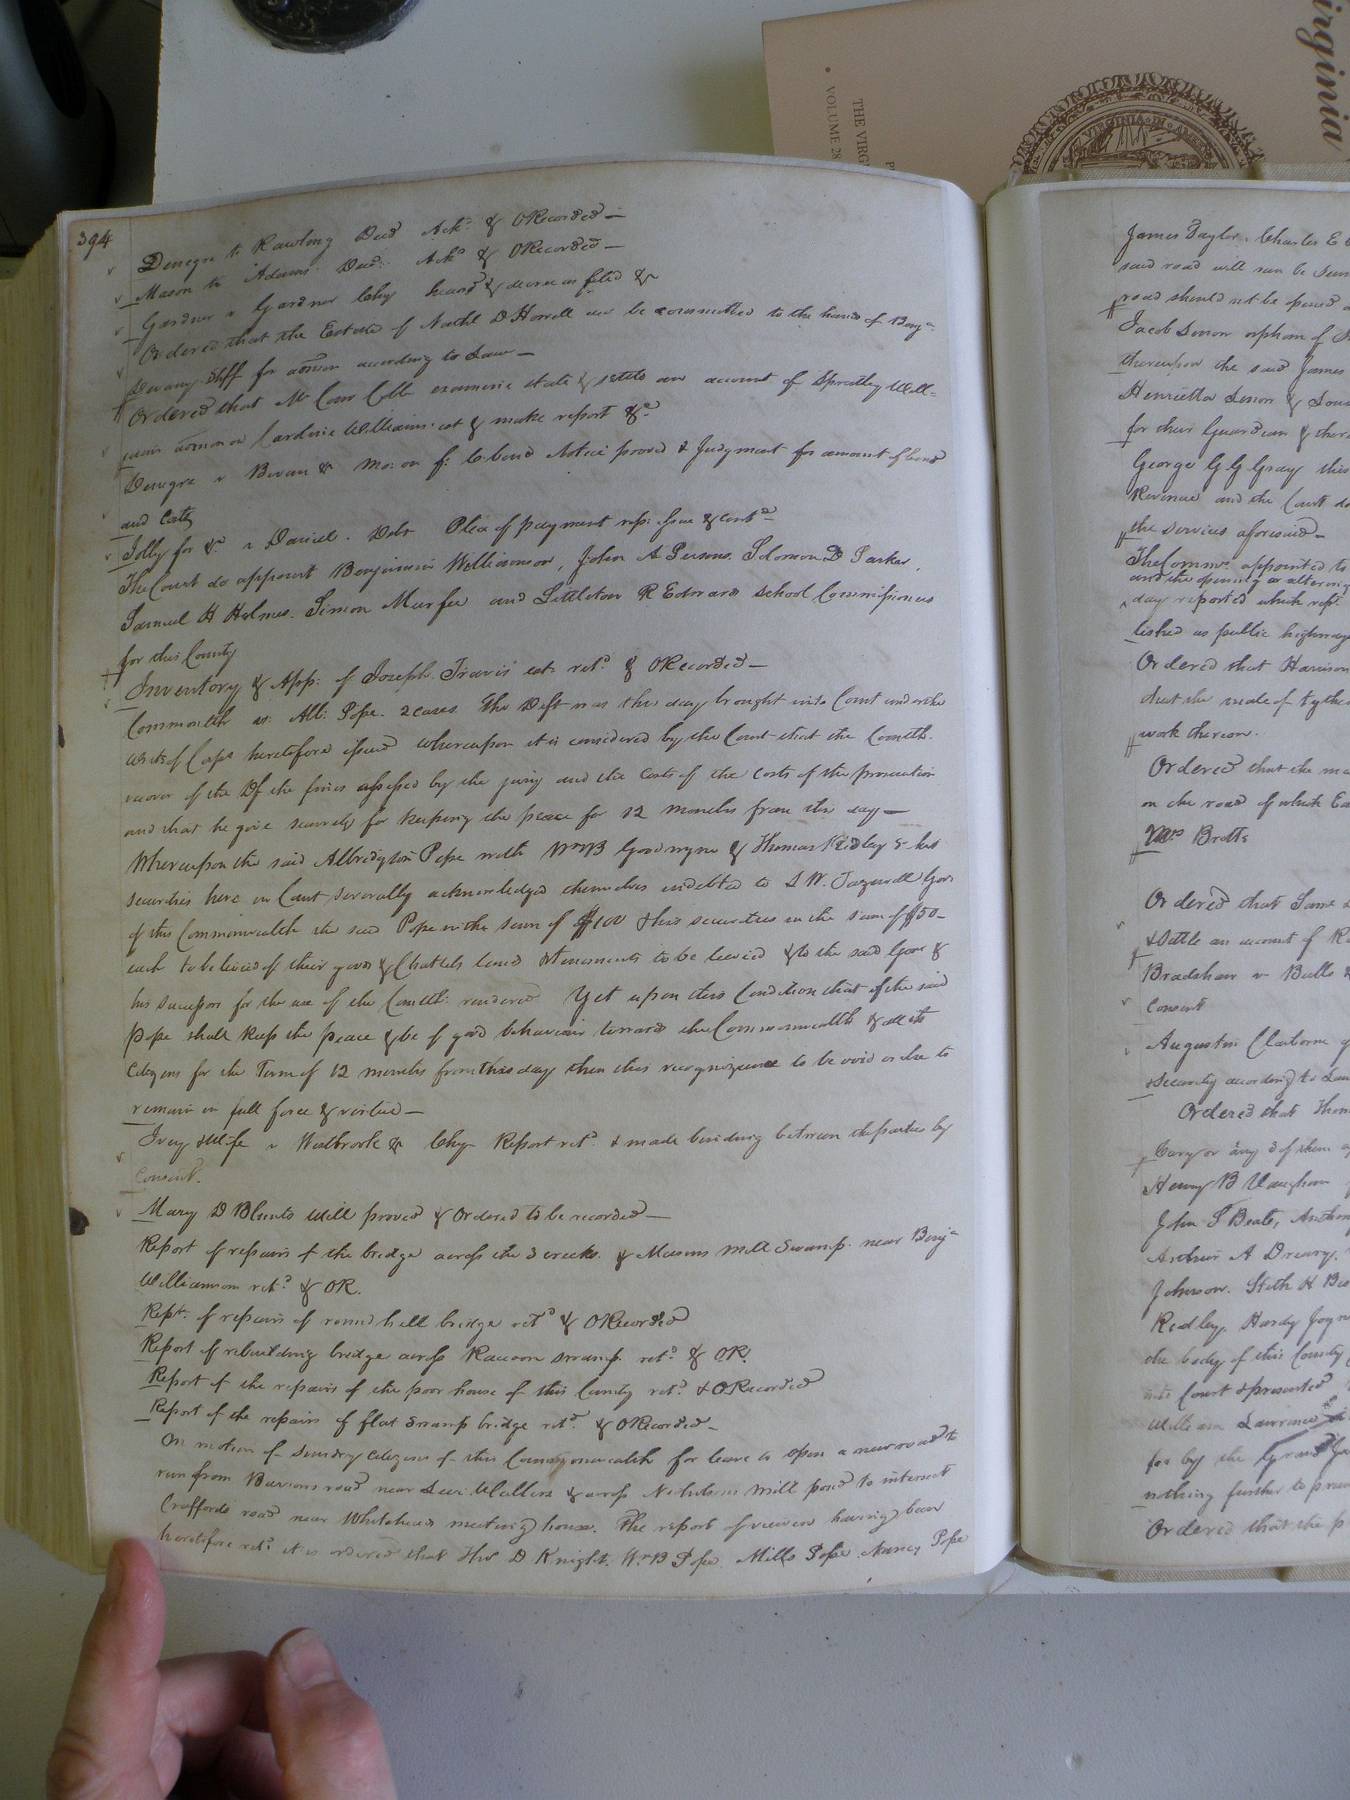 394
Denegre to Rawlong Deed Ackd & ORecorded—
Mason to Adams Deed Ackd & ORecorded—
Gardner v Gardner Chy heard & decree as filed &c
Ordered that the Estate of Nathl D Howell dec be committed to the hands of Benja
Devany Shff for admon according to Law—
Ordered that examine state & settle an account of Spratley Will=
iams admon on Cardine Williams est & make report &c
Denegre v Bevan &c Mo: on f: G bond Notice proved & Judgment for amount of bond
and Costs
Jolly for &c v Daniel. Debt Plea of payment rep: issue & contd
The Court do appoint Benjamin Williamson, John A Persons, Solomon D Parker,
Samuel H Holmes. Simon Murfee and Littleton R Edwards School Commissioners
for this County
Inventory & App: of Joseph Travis' est: retd & ORecorded—
Commonlth vs. Alb: Pope. 2 cases. The Deft was this day brought into Court under the
writs of Capa heretofore issued whereupon it is considered by the Court that the Comth.
recover of the Df the fines assessed by the jury and the Costs of the costs of the prosecution
and that he give security for keeping the peace for 12 months from this day—
Whereupon the said Albridgton Pope with Wm B Goodwyne & Thomas Ridley Sr his
securities here in Court severally acknowledged themselves indebted to L W. Tazewell Govr
of this Commonwealth the said Pope in the sum of $100 & his securities in the sum of $50—
each to be levied of their goods & Chattels lands & tenements to be levied & to the said Govr &
his successors for the use of the Comlth: rendered Yet upon this Condition that if the said
Pope shall keep the peace & be of good behaviour towards the Commonwealth & all its
Citizens for the Term of 12 months from this day then this recognizance to be void or else to
remain in full force & virtue—
Ivey & Wife v Westbrook &c Chy Report retd & made binding between the parties by
Consent.
Mary D Blunts Will proved & Ordered to be recorded—
Report of repairs of the bridge across the 3 creeks & Masons Mill Swamp near Benja
Williamson retd & OR.
Rept. of repairs of round hill bridge retd & ORecorded
Report of rebuilding bridge across Racoon swamp retd & OR.
Report of the repairs of the poor house of this County retd & ORecorded
Report of the repairs of flat Swamp bridge retd & ORecorded—
On motion of sundry Citizens of this Commonwealth for leave to open a new road to
run from Barrons road near Levi Wallers & across Nicholsons mill pond to intersect
Craffords road near Whiteheads meeting house. The report of viewers having been
heretofore retd it is ordered that Thos D Knight. Wm B Pope. Mills Pope Nancy Pope
James Taylor. Charles E
said road will run be
road should not be opened
Jacob Simon orphan of
thereupon the said James
Henrietta Simon &
for their Guardian & there
George G G Gray this
Revenue and the Court do
the services aforesaid—
The Comms. appointed to
and the opening or altering
day reported which rept.
lished as public highway
Ordered that Harrison
that the male tythes
work thereon.
Ordered that the
on the road of which
Mrs Britts
Ordered that
& Settle an account of
Bradshaw v Batts &
Consent
Augustin Claiborne
& Security according to Law
Ordered that Thom
Cary or any 3 of them
Henry B Vaughan
John S Beale, Anthony
Arthur A Dreary.
Johnson. Stith H
Ridley. Hardy
the body of this County
into Court & presented
William Lawrence
for by the Grand
nothing further to
Ordered that the
irginia
THE VIRG
VOLUME 28
VIRGINIA